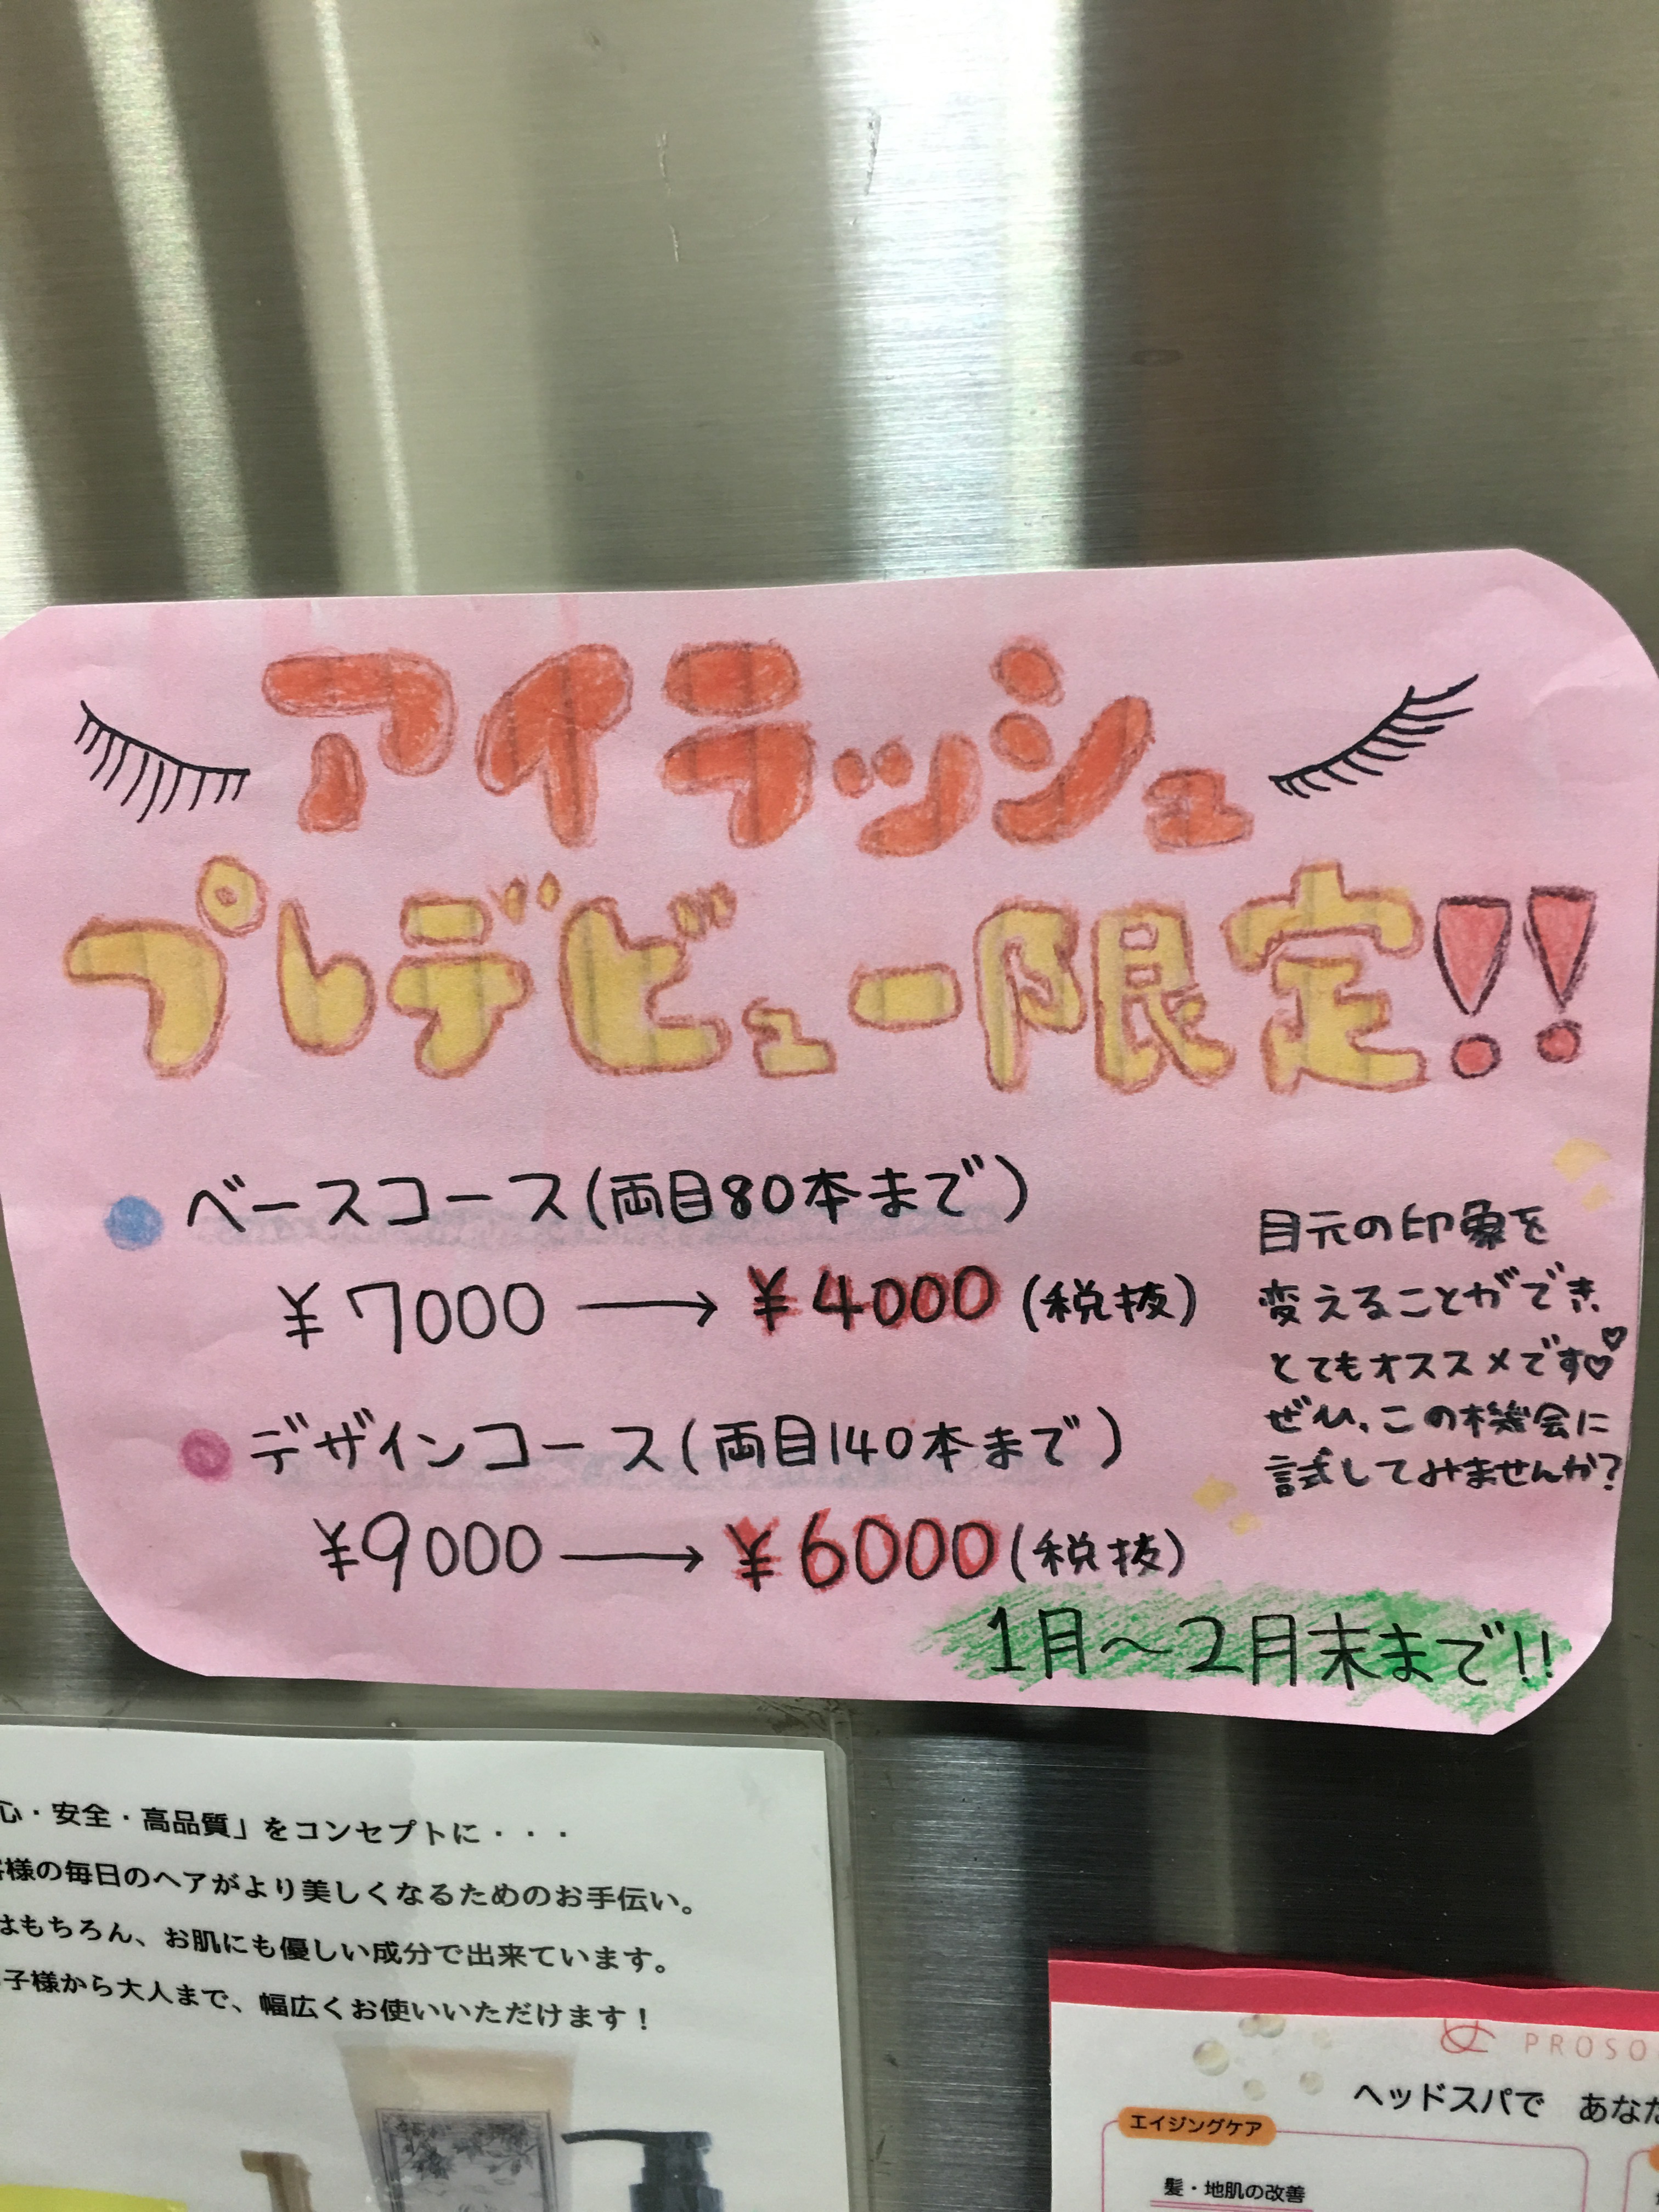 アイラッシュ
プレデビュー限定!!
ベースコース(両目80本まで)
¥7000 → ¥4000 (税抜)
デザインコース(両目140本まで)
¥9000 → ¥6000 (税抜)
目元の印象を
変えることができ、
とてもオススメです♡♡
ぜひ、この機会に
試してみませんか?
1月~2月末まで!!
心・安全・高品質」をコンセプトに・・・
客様の毎日のヘアがより美しくなるためのお手伝い。
はもちろん、お肌にも優しい成分で出来ています。
子様から大人まで、幅広くお使いいただけます!
PROSO
ヘッドスパで あなた
エイジングケア
髪・地肌の改善